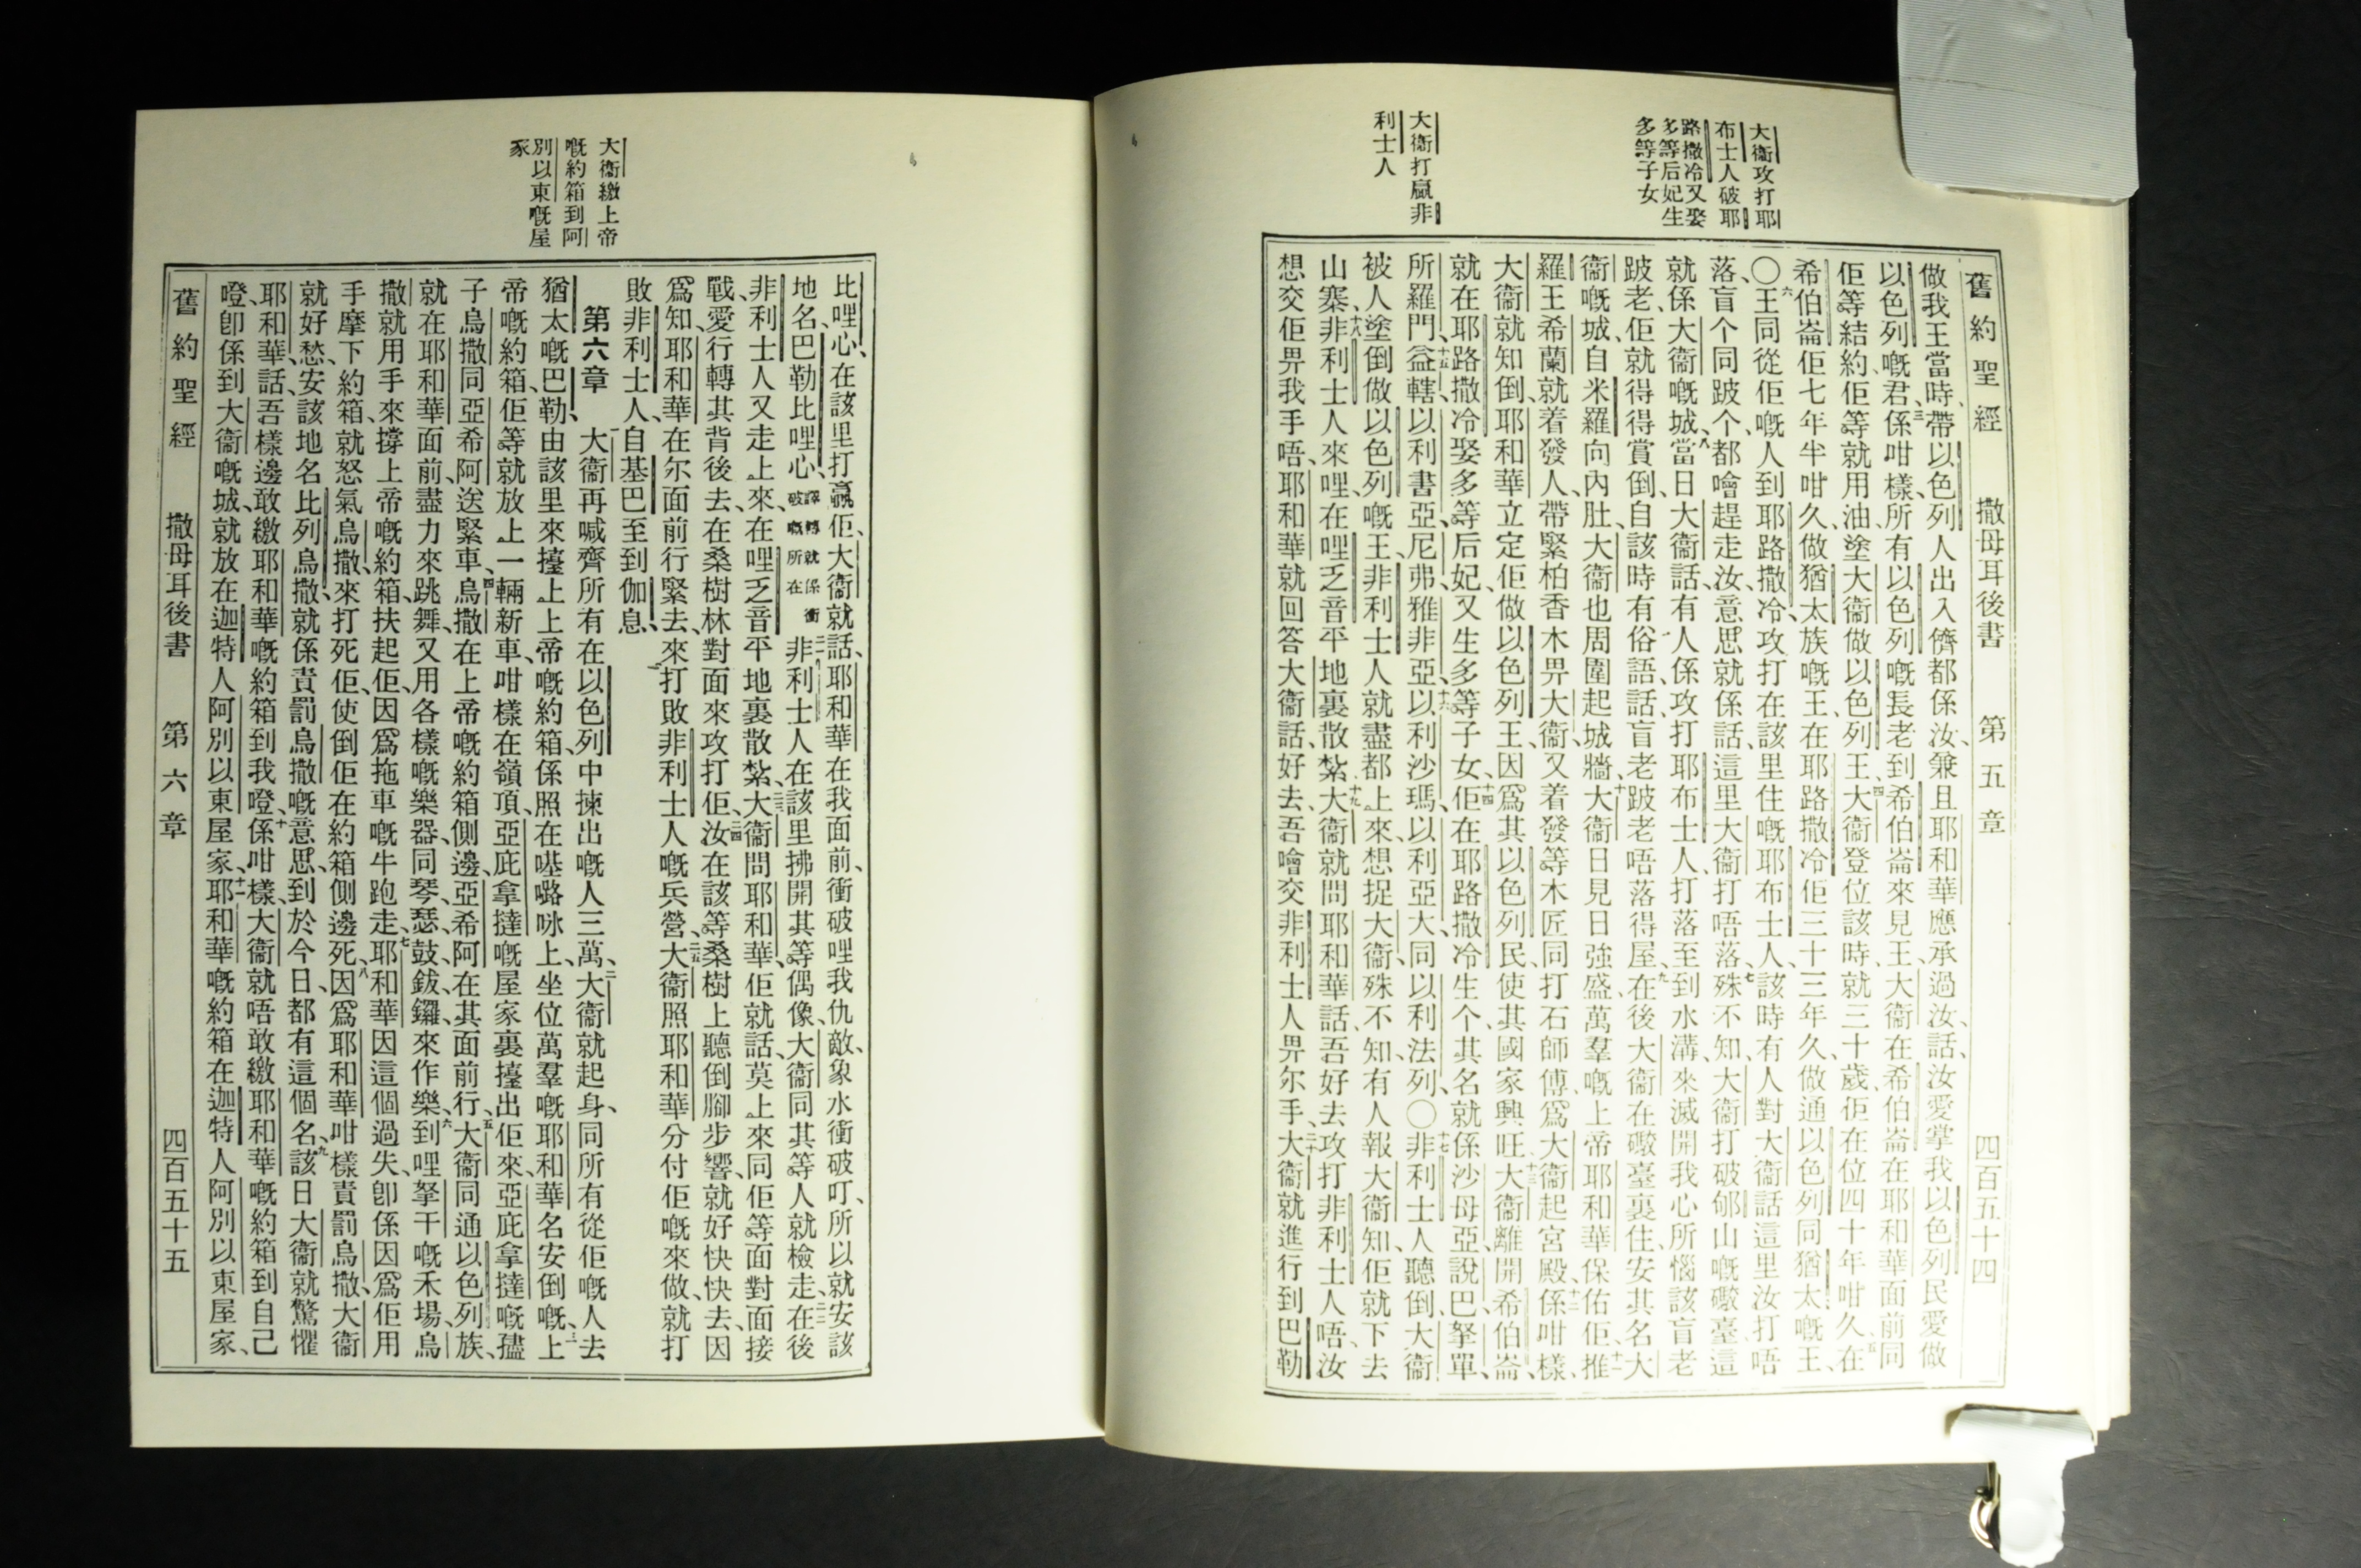 大衞攻打耶
布士人破耶
路撒冷又娶
多等后妃生
多等子女
大衞打贏非
利士人
舊約聖經 撒母耳後書 第五章 四百五十四
做我王當時、帶以色列人出入儕都係汝、兼且耶和華應承過汝、話、汝愛掌我以色列民愛做
以色列嘅君、三係咁樣、所有以色列嘅長老到希伯崙來見王、大衞在希伯崙在耶和華面前同
佢等結約、佢等就用油塗大衞做以色列王、四大衞登位該時、就三十歲、佢在位四十年咁久、五在
希伯崙佢七年半咁久、做猶太族嘅王、在耶路撒冷佢三十三年久、做通以色列同猶太嘅王、
〇六王同從佢嘅人到耶路撒冷、攻打在該里住嘅耶布士人、該時有人對大衞話、這里汝打唔
落、盲个同跛个、都噲趕走汝、意思就係話、這里大衞打唔落、七殊不知、大衞打破郇山嘅礮臺、這
就係大衞嘅城、八當日大衞話、有人係攻打耶布士人、打落至到水溝、來滅開我心所惱該盲老
跛老、佢就得得賞倒、自該時有俗語話、盲老跛老唔落得屋、九在後大衞在礮臺裏住、安其名大
衞嘅城、自米羅向內肚、大衞也周圍起城牆、十大衞日見日強盛、萬羣嘅上帝耶和華保佑佢、十一推
羅王希蘭就着發人、帶緊柏香木畀大衞、又着發等木匠、同打石師傅、爲大衞起宮殿、十二係咁樣、
大衞就知倒、耶和華立定佢做以色列王、因爲其以色列民、使其國家興旺、十三大衞離開希伯崙、
就在耶路撒冷娶多等后妃、又生多等子女、十四佢在耶路撒冷生个、其名就係沙母亞、說巴、拏單、
所羅門、十五益轄、以利書亞、尼弗雅非亞、十六以利沙瑪、以利亞大、同以利法列、〇十七非利士人聽倒、大衞
被人塗倒做以色列嘅王、非利士人就盡都上來、想捉大衞、殊不知、有人報大衞知、佢就下去
山寨、十八非利士人來哩、在哩乏音平地裏散紮、十九大衞就問耶和華話、吾好去攻打非利士人唔、汝
想交佢畀我手唔、耶和華就回答大衞話、好去、吾噲交非利士人畀尔手、二十大衞就進行到巴勒
大衞繳上帝
嘅約箱到阿
別以東嘅屋
豕
比哩心、在該里打贏佢、大衞就話、耶和華在我面前、衝破哩我仇敵、象水衝破叮、所以就安該
地名、巴勒比哩心、譯轉就係衝破嘅所在 二一非利士人在該里拂開其等偶像、大衞同其等人就檢走、二二在後
非利士人又走上來、在哩乏音平地裏散紮、二三大衞問耶和華、佢就話、莫上來同佢等面對面接
戰、愛行轉其背後去、在桑樹林對面來攻打佢、二四汝在該等桑樹上聽倒腳步響、就好快快去、因
爲知、耶和華在尔面前行緊去、來打敗非利士人嘅兵營、二五大衞照耶和華分付佢嘅來做、就打
敗非利士人、自基巴至到伽息、
第六章 一大衞再喊齊所有在以色列中揀出嘅人三萬、二大衞就起身、同所有從佢嘅人去
猶太嘅巴勒、由該里來擡上上帝嘅約箱、係照在㗭嚕咏上、坐位萬羣嘅耶和華名安倒嘅、三上
帝嘅約箱、佢等就放上一輛新車、咁樣在嶺頂、亞庇拿撻嘅屋家裏擡出佢來、亞庇拿撻嘅孻
子烏撒同亞希阿、送緊車、四烏撒在上帝嘅約箱側邊、亞希阿在其面前行、五大衞同通以色列族、
就在耶和華面前盡力來跳舞、又用各樣嘅樂器、同琴、瑟、鼓、鈸、鑼、來作樂、六到哩拏干嘅禾場、烏
撒就用手來撐上帝嘅約箱、扶起佢、因爲拖車嘅牛跑走、七耶和華因這個過失、卽係因爲佢用
手摩下約箱、就怒氣烏撒、來打死佢、使倒佢在約箱側邊死、八因爲耶和華咁樣責罰烏撒、大衞
就好愁、安該地名比列烏撒、就係責罰烏撒嘅意思、到於今日、都有這個名、九該日大衞就驚懼
耶和華、話、吾樣邊敢繳耶和華嘅約箱到我噔、十係咁樣、大衞就唔敢繳耶和華嘅約箱到自己
噔、卽係到大衞嘅城、就放在迦特人阿別以東屋家、十一耶和華嘅約箱在迦特人阿別以東屋家、
舊約聖經 撒母耳後書 第六章 四百五十五